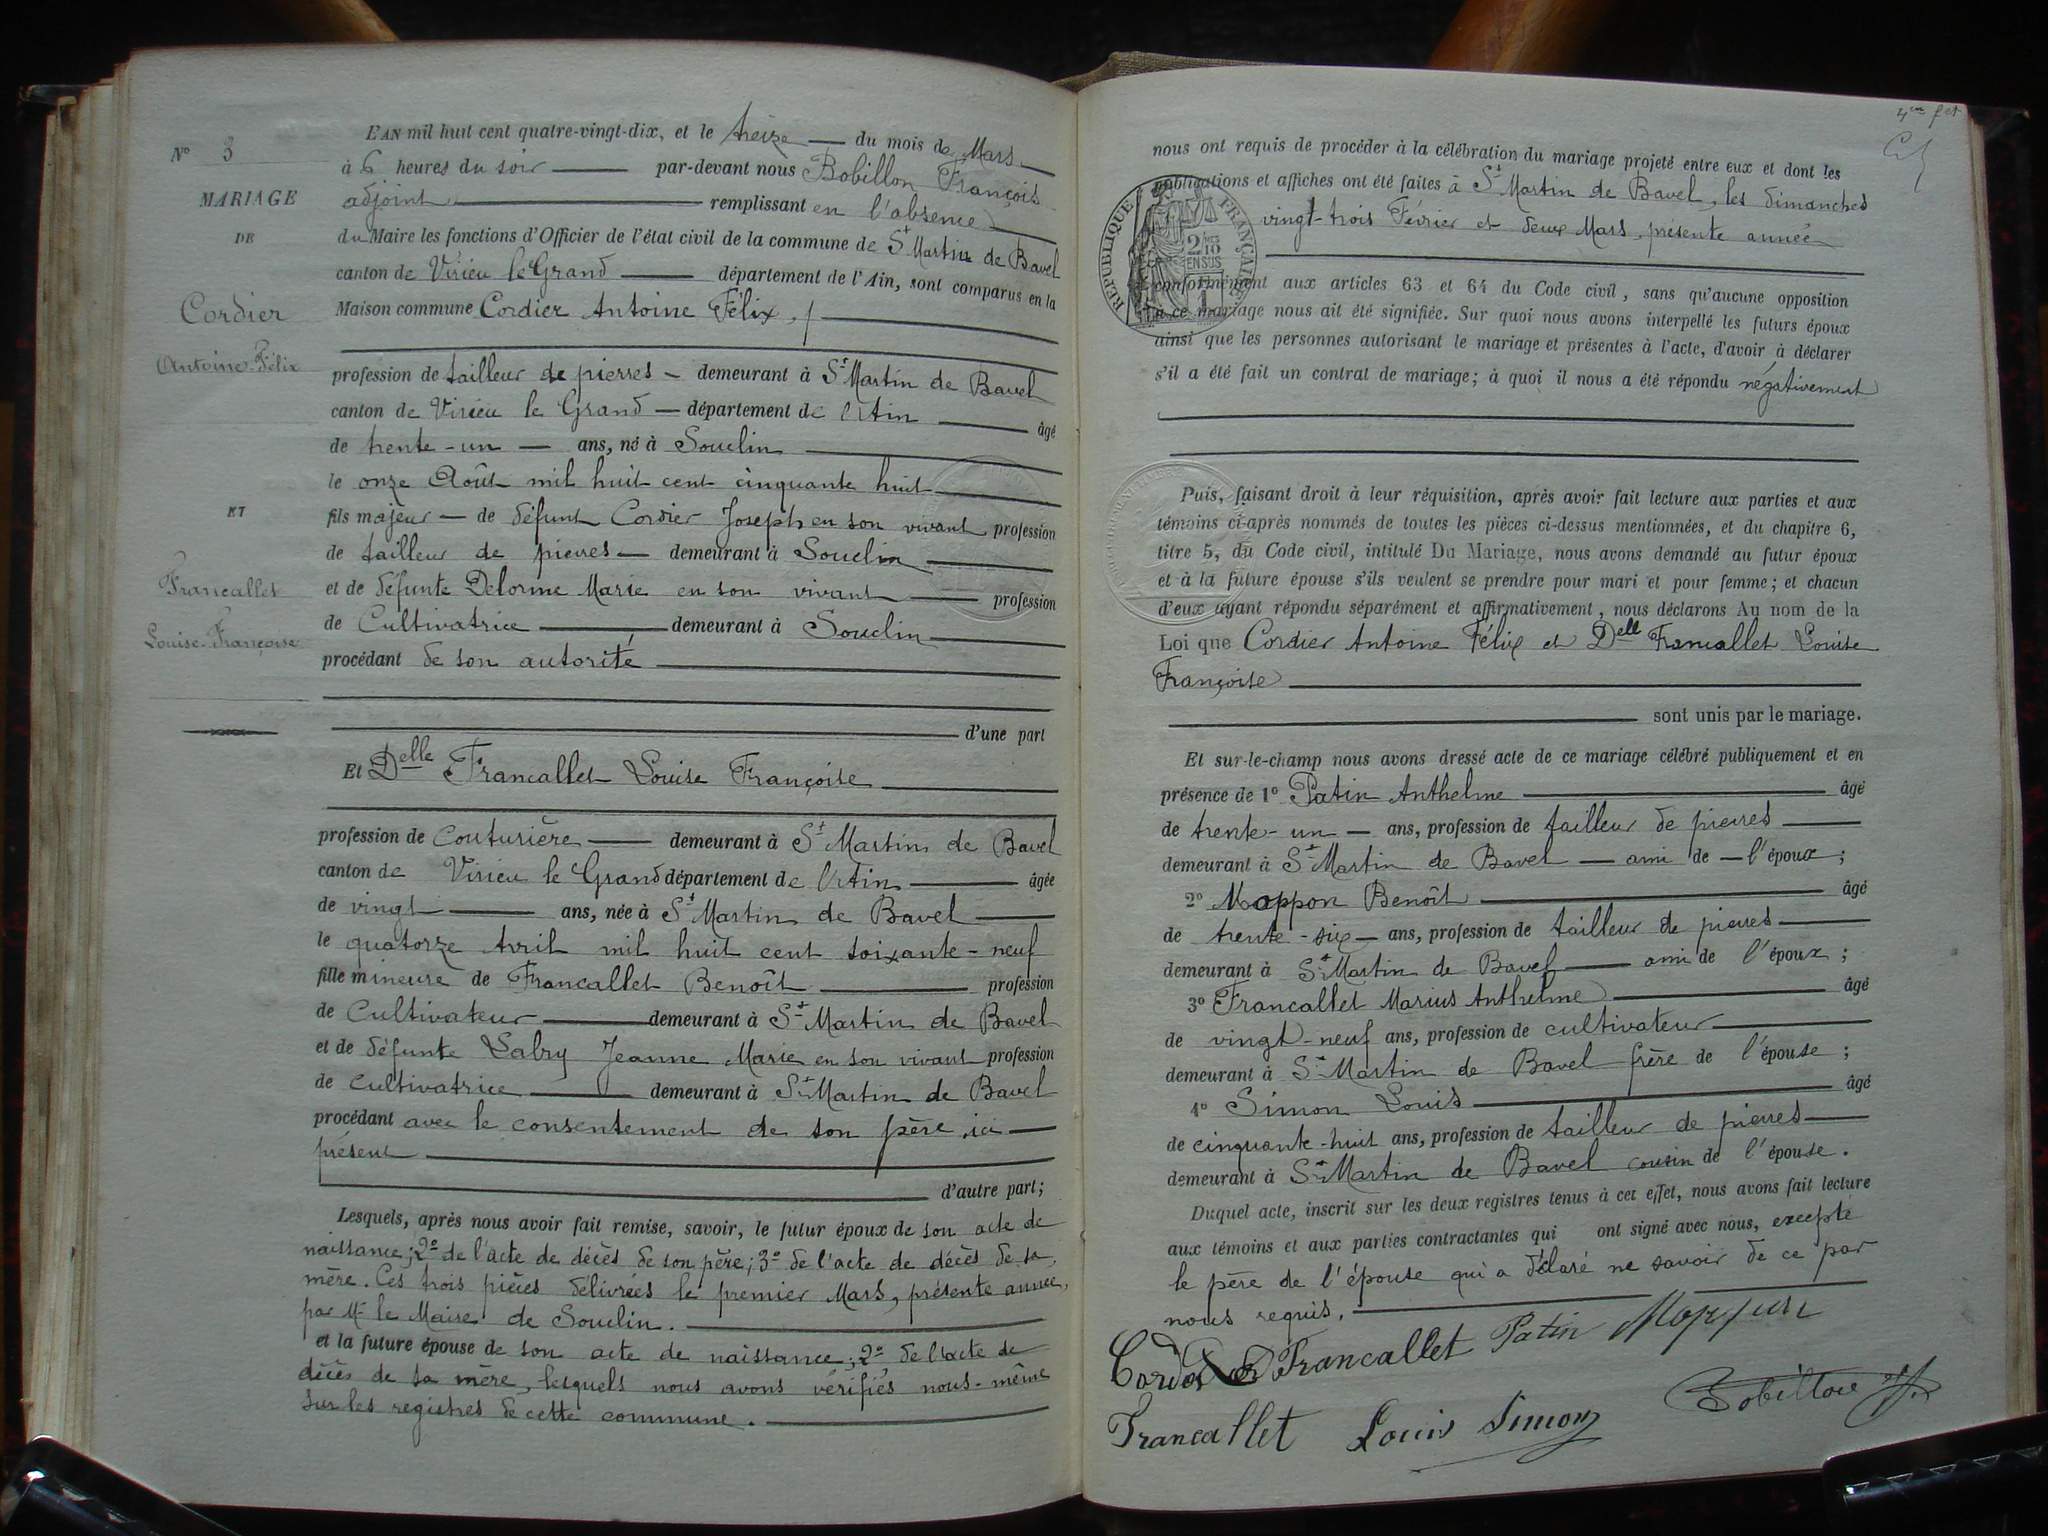 N° 3
MARIAGE
DE
Cordier
Antoine Félix
ET
Francallet
Louise-Françoise
L'AN mil huit cent quatre-vingt-dix, et le treize du mois de Mars
à 6 heures du soir par-devant nous Bobillon François
adjoint remplissant en l'absence
du Maire les fonctions d'Officier de l'état civil de la commune de St Martin de Bavel
canton de Virieu le Grand département de l'Ain, sont comparus en la
Maison commune Cordier Antoine Félix,
profession de tailleur de pierres demeurant à St Martin de Bavel
canton de Virieu le Grand département de l'Ain âgé
de trente-un ans, né à Souclin
le onze Août mil huit cent cinquante huit
fils majeur de défunt Cordier Joseph en son vivant profession
de tailleur de pierres demeurant à Souclin
et de défunte Delorme Marie en son vivant profession
de Cultivatrice demeurant à Souclin
procédant de son autorité
d'une part
Et Delle Francallet Louise Françoise
profession de couturière demeurant à St Martin de Bavel
canton de Virieu le Grand département de l'Ain âgée
de vingt ans, née à St Martin de Bavel
le quatorze Avril mil huit cent soixante-neuf
fille mineure de Francallet Benoît profession
de Cultivateur demeurant à St Martin de Bavel
et de défunte Labry Jeanne Marie en son vivant profession
de cultivatrice demeurant à St Martin de Bavel
procédant avec le consentement de son père ici
présent
d'autre part;
Lesquels, après nous avoir fait remise, savoir, le futur époux de son acte de
naissance; 2° de l'acte de décès de son père; 3° de l'acte de décès de sa
mère. Ces trois pièces délivrées le premier Mars, présente année,
par Mr le Maire de Souclin.
et la future épouse de son acte de naissance; 2° de l'acte de
décès de sa mère, lesquels nous avons vérifiés nous-même
sur les registres de cette commune.
nous ont requis de procéder à la célébration du mariage projeté entre eux et dont les
publications et affiches ont été faites à St Martin de Bavel, les dimanches
vingt-trois Février et deux Mars, présente année
RÉPUBLIQUE FRANÇAISE
2/10 EN SUS
conformément aux articles 63 et 64 du Code civil, sans qu'aucune opposition
à ce mariage nous ait été signifiée. Sur quoi nous avons interpellé les futurs époux
ainsi que les personnes autorisant le mariage et présentes à l'acte, d'avoir à déclarer
s'il a été fait un contrat de mariage; à quoi il nous a été répondu négativement
Puis, faisant droit à leur réquisition, après avoir fait lecture aux parties et aux
témoins ci-après nommés de toutes les pièces ci-dessus mentionnées, et du chapitre 6,
titre 5, du Code civil, intitulé Du Mariage, nous avons demandé au futur époux
et à la future épouse s'ils veulent se prendre pour mari et pour femme; et chacun
d'eux ayant répondu séparément et affirmativement, nous déclarons Au nom de la
Loi que Cordier Antoine Félix et Delle Francallet Louise
Françoise
sont unis par le mariage.
Et sur-le-champ nous avons dressé acte de ce mariage célébré publiquement et en
présence de 1° Patin Anthelme âgé
de trente-un ans, profession de tailleur de pierres
demeurant à St Martin de Bavel ami de l'époux;
2° Mappon Benoît âgé
de trente-six ans, profession de tailleur de pierres
demeurant à St Martin de Bavel ami de l'époux;
3° Francallet Marius Anthelme âgé
de vingt-neuf ans, profession de cultivateur
demeurant à St Martin de Bavel frère de l'épouse;
4° Simon Louis âgé
de cinquante-huit ans, profession de tailleur de pierres
demeurant à St Martin de Bavel cousin de l'épouse.
Duquel acte, inscrit sur les deux registres tenus à cet effet, nous avons fait lecture
aux témoins et aux parties contractantes qui ont signé avec nous, excepté
le père de l'épouse qui a déclaré ne savoir de ce par
nous requis.
Cordier Francallet Patin Mappon
Francallet Louis Simon Bobillon